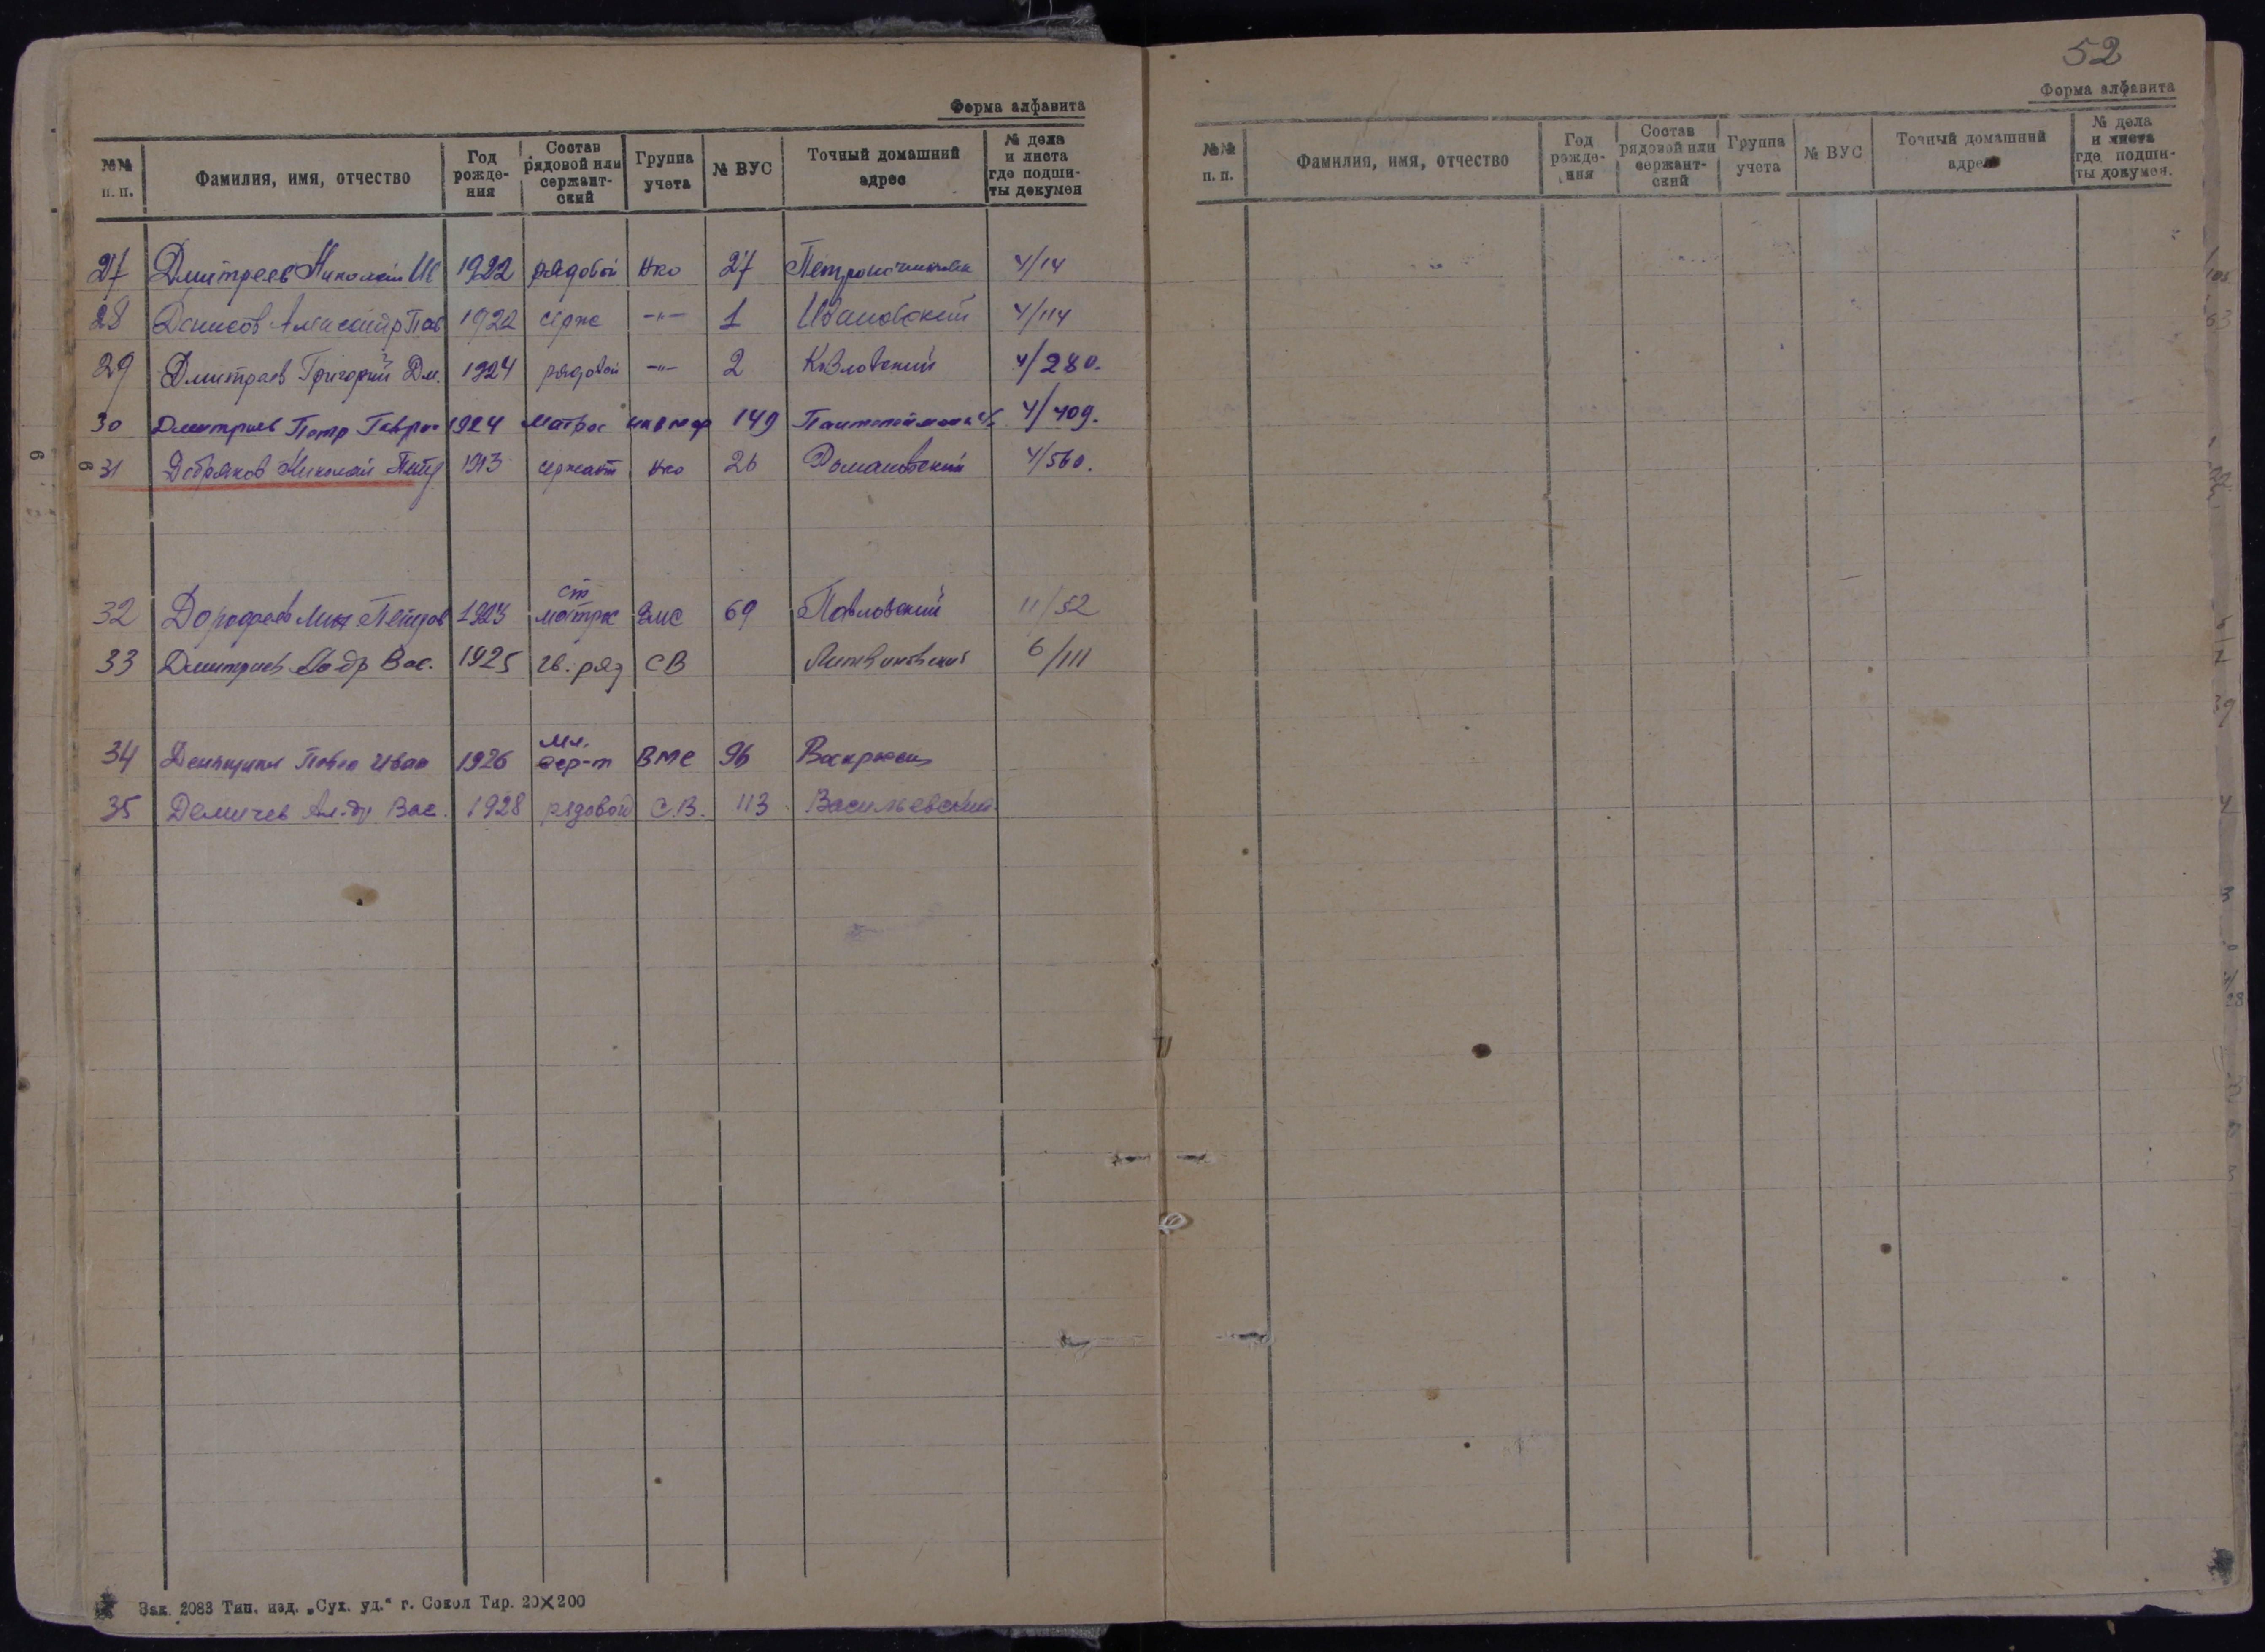 Форма алфавита
№№ п. п. Фамилия, имя, отчество Год рожде-ния Состав рядовой или сержант-ский Группа учета № ВУС Точный домашний адрес № дела и листа где подши-ты докумен
27 Дмитреев Николай Ив 1922 рядовой Нко 27 4/14
28 Денисов Александр Пав 1922 серж -"- 1 Ивановский 4/114
29 Дмитреев Григорий Дм. 1924 рядовой -"- 2 Козловский 4/280.
30 Дмитриев Петр Гаврил 1924 матрос НКВМФ 149 4/409.
31 Добряков Николай Петр 1913 сержант Нко 26 Романовский 4/560.
32 Дорофеев Мих Петров 1923 ст матрос ВМС 69 Павловский 11/52
33 Дмитриев Вас. 1925 гв. ряд СВ Литвиновский 6/111
34 Павел Иван 1926 мл. сер-т ВМС 96
35 Демичев Ал-др Вас. 1928 рядовой С.В. 113 Васильевский
Зак. 2083 Тип. изд. „Сух. уд.“ г. Сокол Тир. 20×200
52
Форма алфавита
№№ п. п. Фамилия, имя, отчество Год рожде-ния Состав рядовой или сержант-ский Группа учета № ВУС Точный домашний адрес № дела и листа где подши-ты докумен.